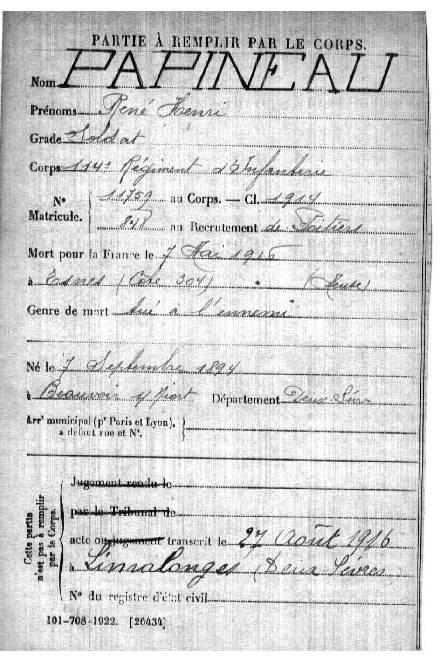 PARTIE À REMPLIR PAR LE CORPS.
Nom PAPINEAU
Prénoms René Henri
Grade Soldat
Corps 114e Régiment d'Infanterie
N° Matricule. 11759 au Corps. — Cl. 1914
848 au Recrutement de Poitiers
Mort pour la France le 7 Mai 1916
à Esnes (Côte 304) (Meuse)
Genre de mort tué à l'ennemi
Né le 7 Septembre 1894
à Beauvoir s/ Niort Département Deux Sèvres
Arrt municipal (pr Paris et Lyon),
à défaut rue et N°.
Cette partie n'est pas à remplir par le Corps.
Jugement rendu le
par le Tribunal de
acte ou jugement transcrit le 27 Août 1916
à Limalonges (Deux Sèvres
N° du registre d'état civil
101-708-1922. [26434]